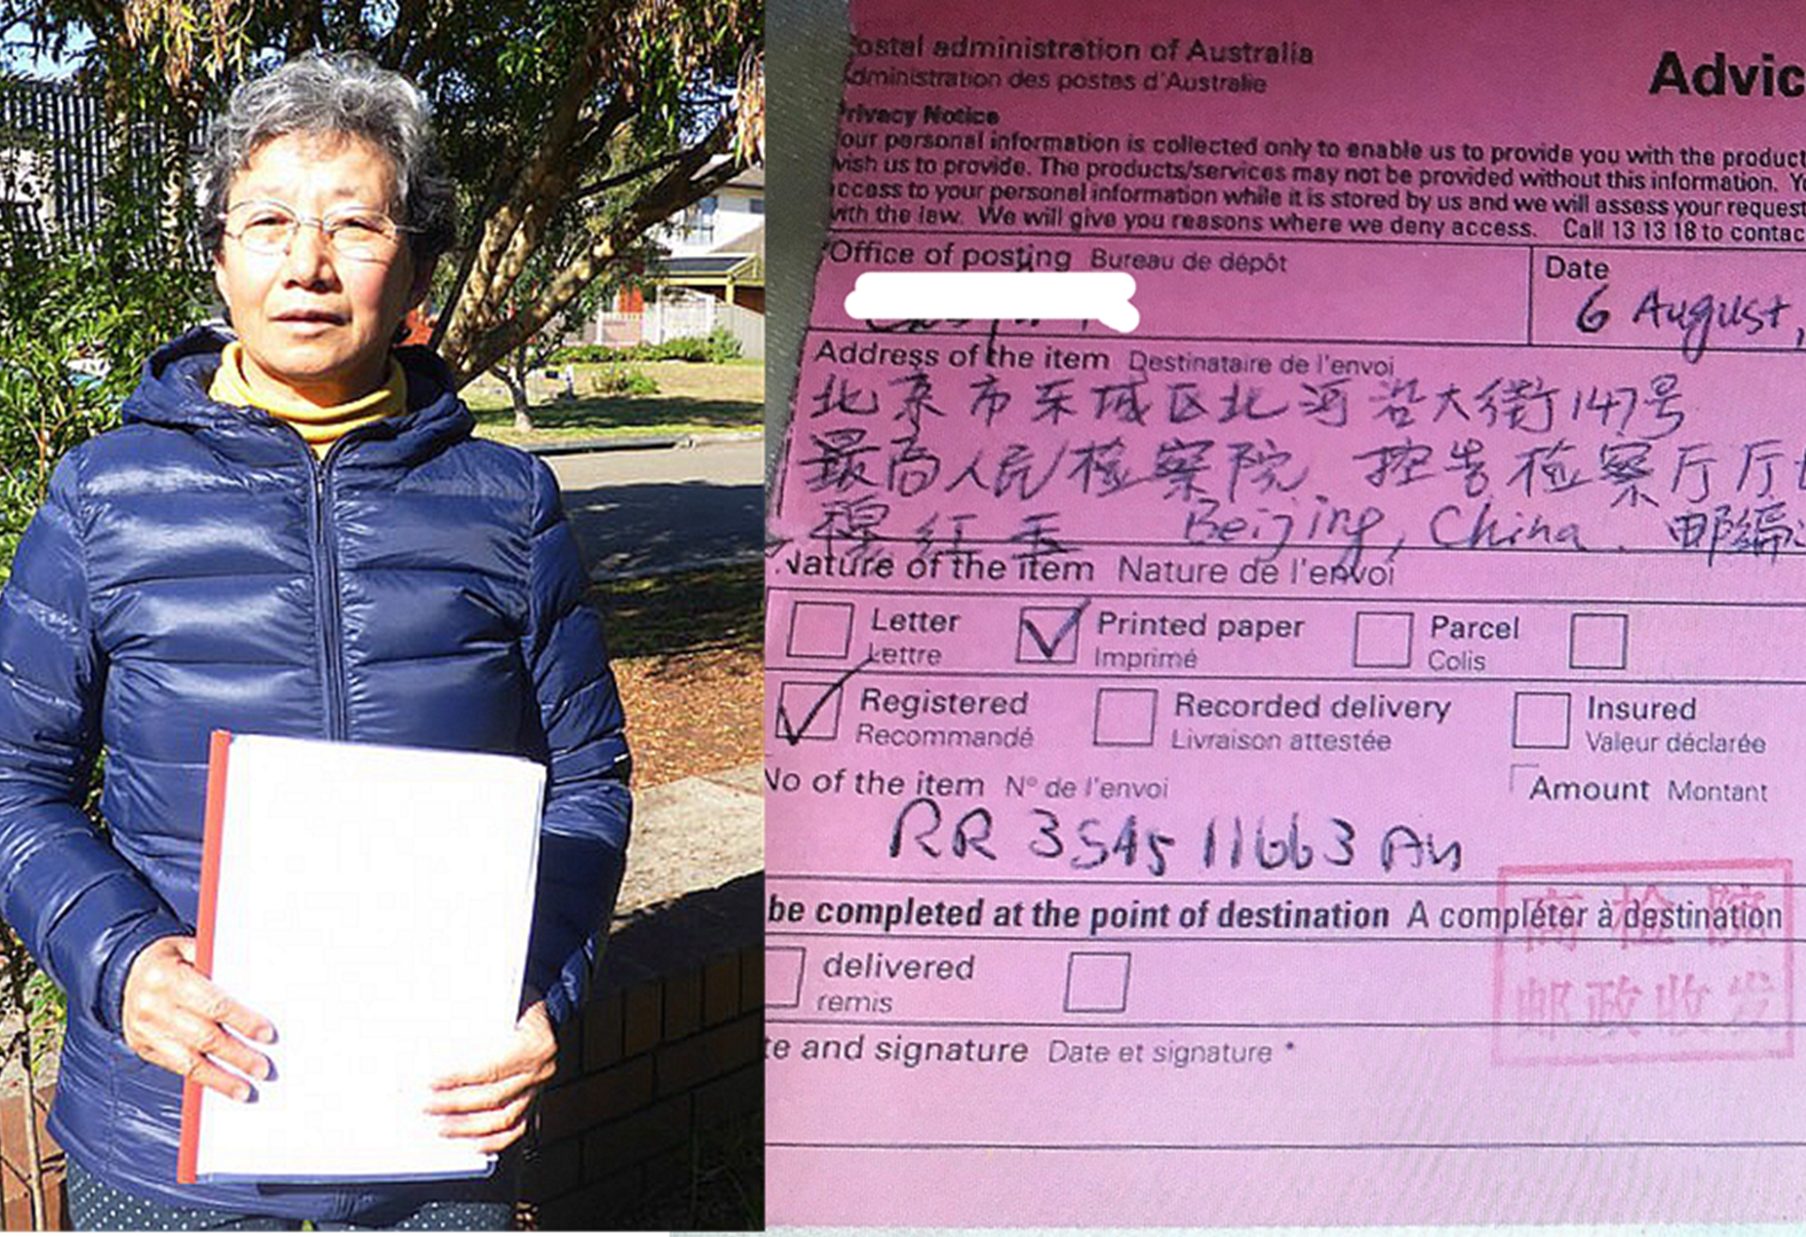 ostal administration of Australia
dministration des postes d'Australie
Advic
rivacy Notice
our personal information is collected only to enable us to provide you with the product
wish us to provide. The products/services may not be provided without this information. Yo
ccess to your personal information while it is stored by us and we will assess your request
with the law. We will give you reasons where we deny access. Call 13 13 18 to contac
Office of posting Bureau de dépôt
Date
6 August,
Address of the item Destinataire de l'envoi
北京市东城区北河沿大街147号
最高人民检察院 控告检察厅厅
穆红玉 Beijing, China. 邮编
Nature of the item Nature de l'envoi
Letter Printed paper Parcel
Lettre Imprimé Colis
Registered Recorded delivery Insured
Recommandé Livraison attestée Valeur déclarée
No of the item N° de l'envoi Amount Montant
RR 3545 11663 Au
be completed at the point of destination A compléter à destination
高检院
邮政收发
delivered
remis
te and signature Date et signature *